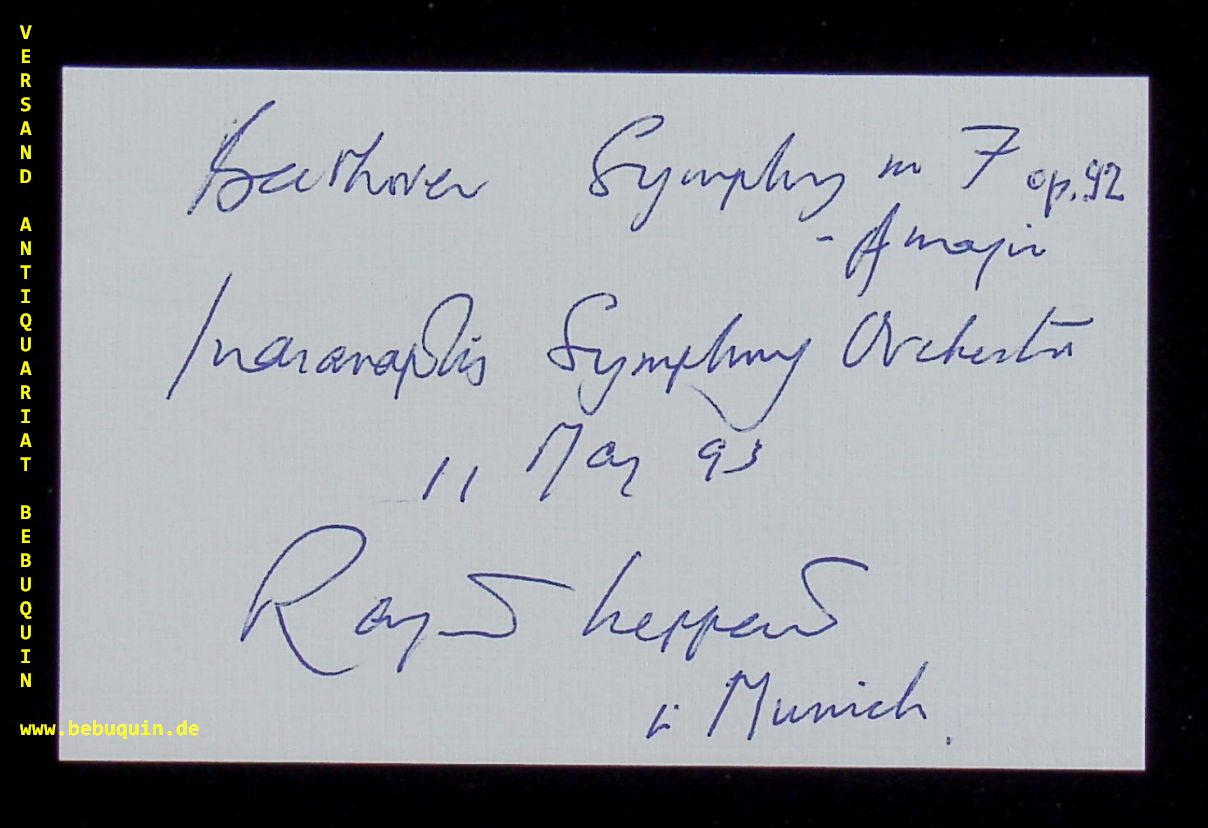 VERSAND ANTIQUARIAT BEBUQUIN
Beethoven Symphony no 7 op.92
- A major
Indianapolis Symphony Orchestra
11 May 93
Raymond Leppard
in Munich.
www.bebuquin.de